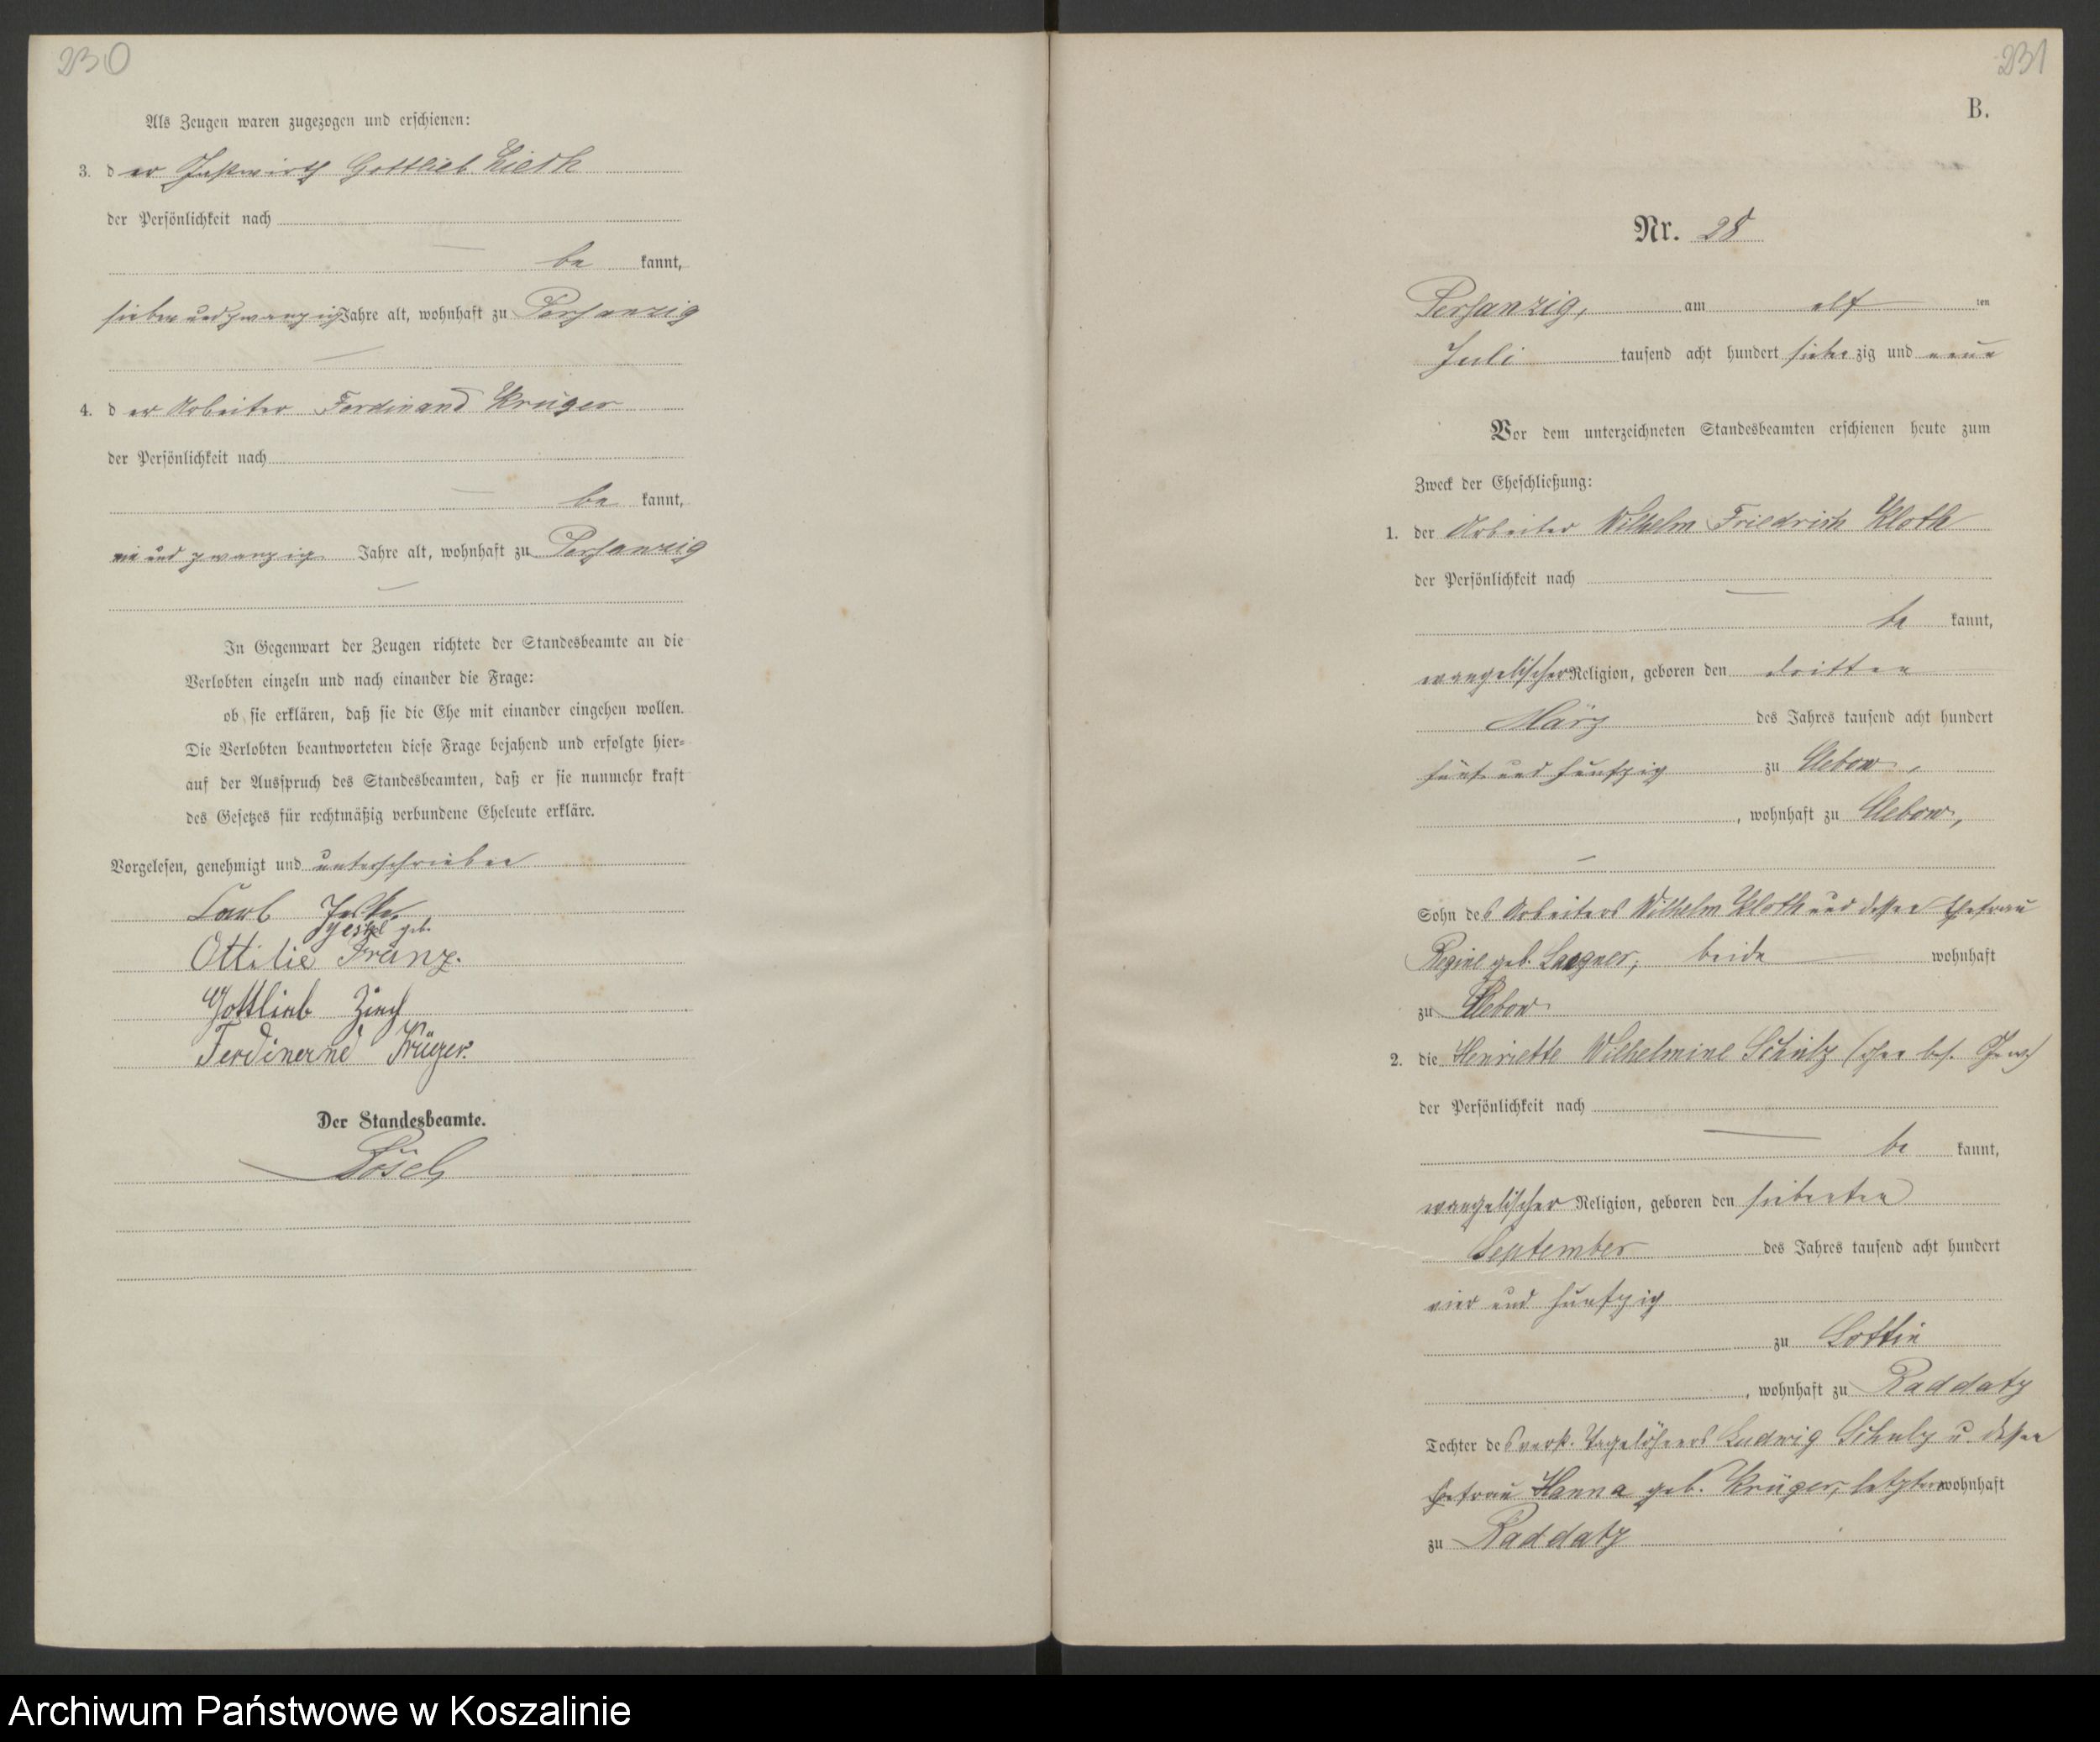 230
Als Zeugen waren zugezogen und erschienen:
3. der Gottlieb Zieth
der Persönlichkeit nach
be kannt,
sieben und zwanzig Jahre alt, wohnhaft zu Persanzig
4. der Arbeiter Ferdinand Krüger
der Persönlichkeit nach
be kannt,
und zwanzig Jahre alt, wohnhaft zu Persanzig
In Gegenwart der Zeugen richtete der Standesbeamte an die
Verlobten einzeln und nach einander die Frage:
ob sie erklären, daß sie die Ehe mit einander eingehen wollen.
Die Verlobten beantworteten diese Frage bejahend und erfolgte hier-
auf der Ausspruch des Standesbeamten, daß er sie nunmehr kraft
des Gesetzes für rechtmäßig verbundene Eheleute erkläre.
Vorgelesen, genehmigt und unterschrieben
Carl
geb.
Ottilie Franz.
Gottlieb
Krüger.
Der Standesbeamte.
231
B.
Nr. 28
Persanzig, am elf ten
Juli tausend acht hundert sieben zig und neun
Vor dem unterzeichneten Standesbeamten erschienen heute zum
Zweck der Eheschließung:
1. der Arbeiter Wilhelm Friedrich Kloth
der Persönlichkeit nach
be kannt,
evangelischer Religion, geboren den dritten
März des Jahres tausend acht hundert
fünf und fünfzig zu
, wohnhaft zu
Sohn des Arbeiters Wilhelm Kloth und dessen Ehefrau
Regine geb. beide wohnhaft
zu
2. die Henriette Wilhelmine Schulz
der Persönlichkeit nach
be kannt,
evangelischer Religion, geboren den siebenten
September des Jahres tausend acht hundert
vier und fünfzig
zu Lottin
, wohnhaft zu Raddatz
Tochter des verst. Tagelöhners Ludwig Schulz u. dessen
Ehefrau Hanna geb. Krüger, letztere wohnhaft
zu Raddatz
Archiwum Państwowe w Koszalinie